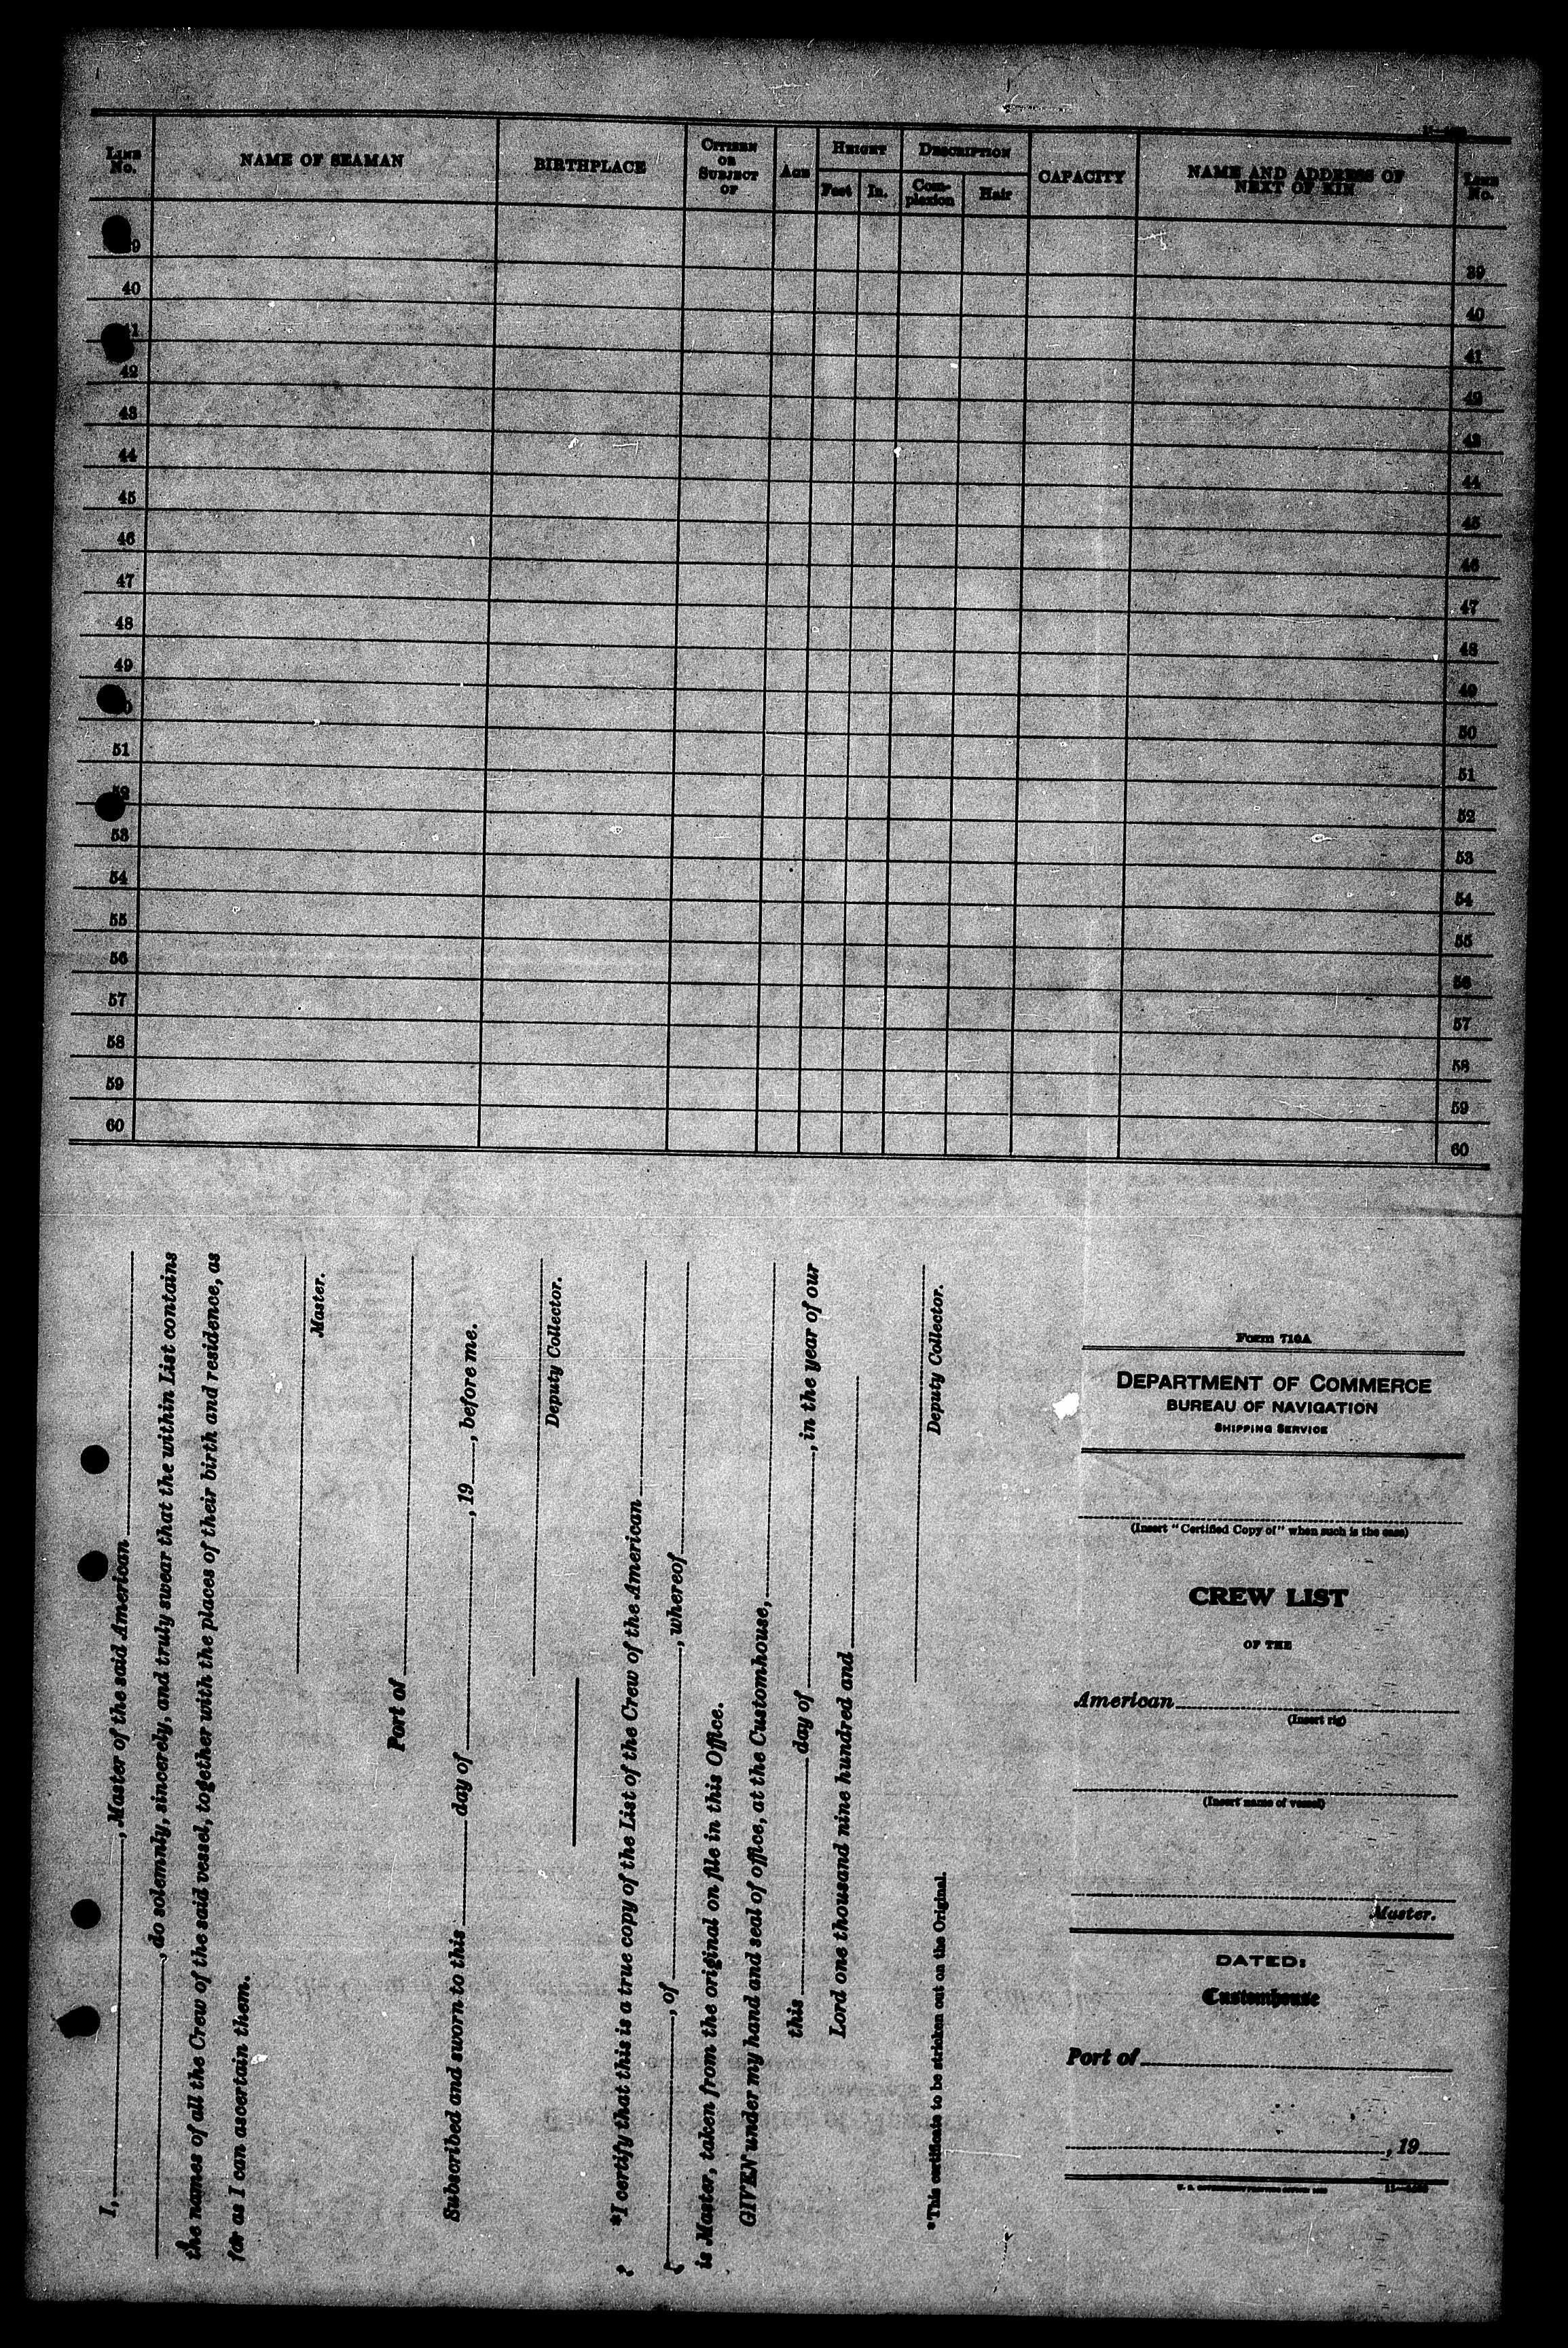 LINE No. NAME OF SEAMAN BIRTHPLACE CITIZEN OR SUBJECT OF AGE HEIGHT Feet In. DESCRIPTION Complexion Hair CAPACITY NAME AND ADDRESS OF NEXT OF KIN LINE No.
39
40 40
41 41
42 42
43 43
44 44
45 45
46 46
47 47
48 48
49 49
50
51 51
52 52
53 53
54 54
55 55
56 56
57 57
58 58
59 59
60 60
I, , Master of the said American
, do solemnly, sincerely, and truly swear that the within List contains
the names of all the Crew of the said vessel, together with the places of their birth and residence, as
far as I can ascertain them.
Master.
Port of
Subscribed and sworn to this day of , 19 , before me.
Deputy Collector.
*I certify that this is a true copy of the List of the Crew of the American
, of , whereof
is Master, taken from the original on file in this Office.
GIVEN under my hand and seal of office, at the Customhouse,
this day of , in the year of our
Lord one thousand nine hundred and
Deputy Collector.
*This certificate to be stricken out on the Original.
Form 710A
DEPARTMENT OF COMMERCE
BUREAU OF NAVIGATION
SHIPPING SERVICE
(Insert "Certified Copy of" when such is the case)
CREW LIST
OF THE
American
(Insert rig)
(Insert name of vessel)
Master.
DATED:
Customhouse
Port of
, 19